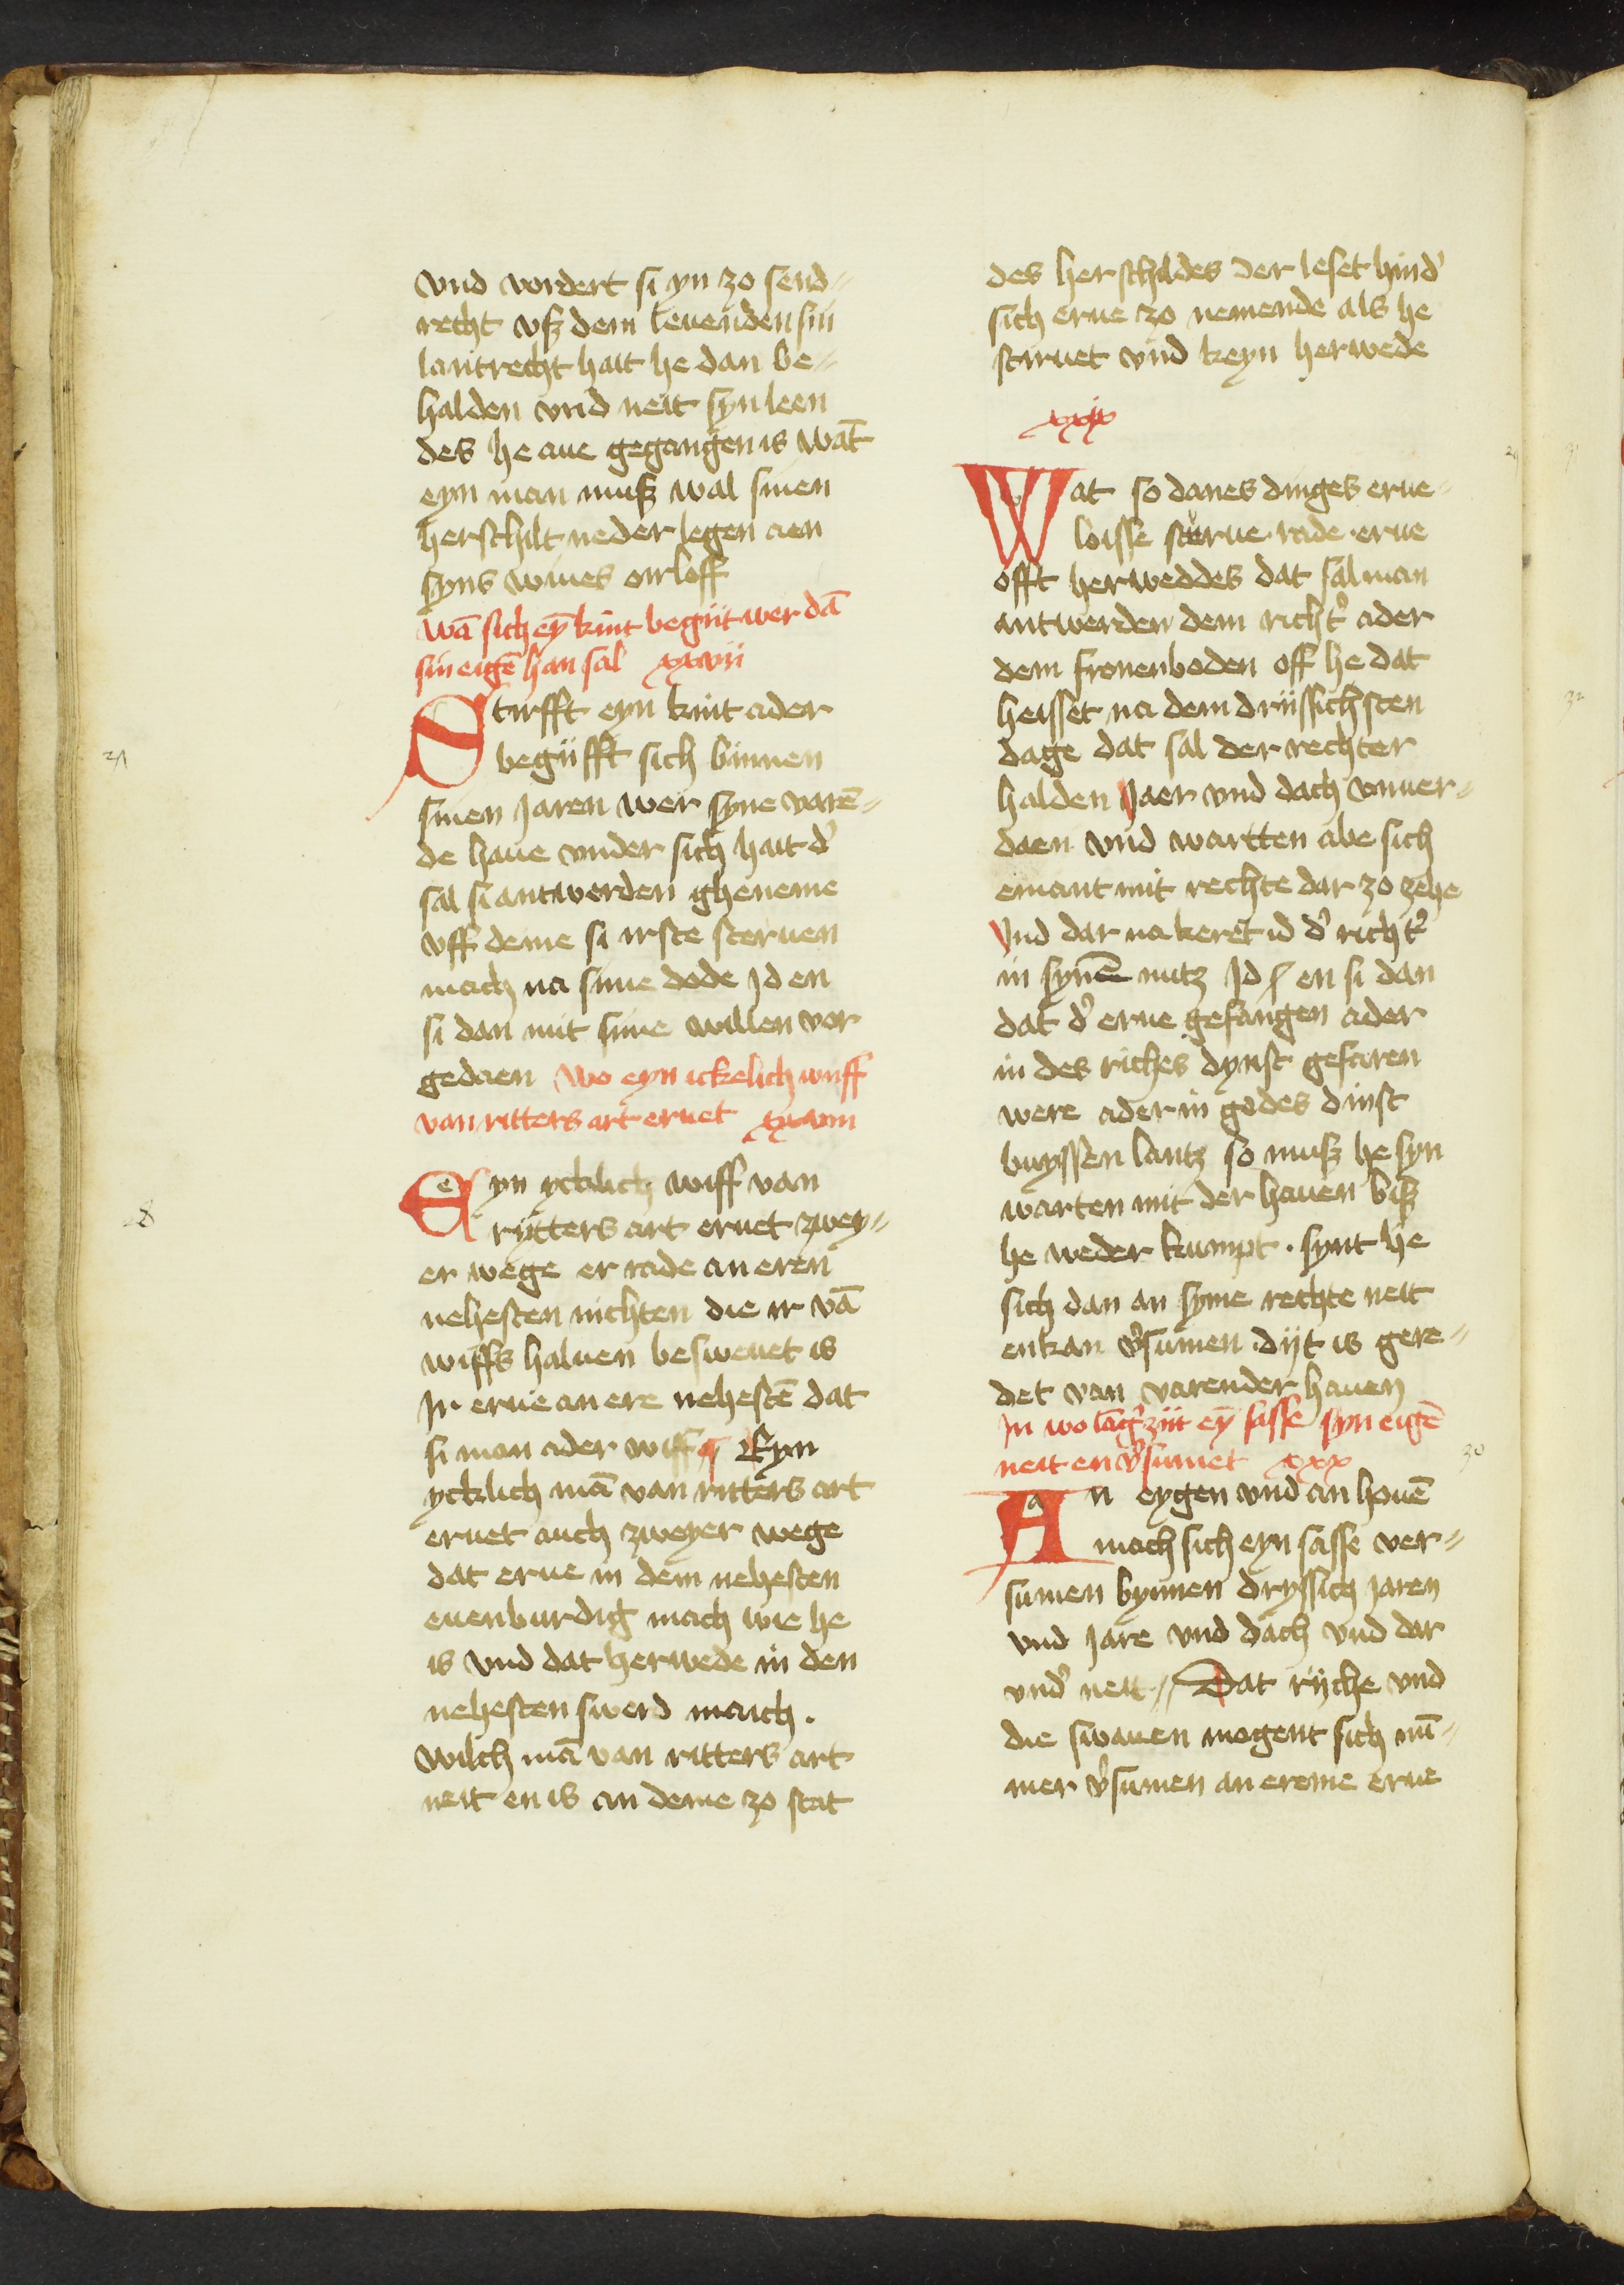 vnd vordert si yn zo send⸗
recht vß dem leuenden sin
lantrecht hait he dan be⸗
halden vnd neit syn leen
des he aue gegangen is wāt
eyn man muß wal sinen
herschilt neder legen aen
syns wiues oirloff
wā sich eȳ kint begiit wer dā
sin eigē han sal xxvii
Stirfft eyn kint ader
begiifft sich binnen
sinen Jaren wer syne varē⸗
de haue vnder sich hait d'
sal si antwerden gheneme
vff deme si irste steruen
mach na sime dode Jd en
si dan mit sime willen vor
gedaen wo eyn ickelich wiff
van ritters art eruet xxviii
Eyn ycklich wiff van
rytters art eruet zwey⸗
er wege er rade an eren
nehesten nichten die ir vā
wiffs haluen besweuet is
Jr erue an ere nehestē dat
si man ader wiff Eyn
ycklich mā van ritters art
eruet auch zweyer wege
dat erue in dem nehesten
euenburdig mach wie he
is vnd dat herwede in den
nehesten swerd maich.
wilch mā van ritters art
neit en is an deme zo stat
des herschildes der leset hind'
sich erue zo nemende als he
stiruet vnd keyn herwede
xxix
Wat so danes dinges erue⸗
loisse sturue rade erue
offt herweddes dat sal man
antwerden dem richt' ader
dem fronenboden off he dat
heisset na dem driissichsten
dage dat sal der rechter
halden Jaer vnd dach vnuer⸗
daen vnd wartten abe sich
emant mit rechte dar zo zehe
Vnd dar na keret id d' richt'
in synē nutz Jd en si dan
dat d' erue gefangen ader
in des riches dynst gefaren
were ader in godes dinst
buyssen lantz so muß he syn
warten mit der hauen biß
he weder kumpt. synt he
sich dan an syme rechte neit
enkan v'sumen dijt is gere⸗
det van varender hauen
Jn wo lāg' ziit eȳ sasse syn eigē
neit en v'sumet xxx
An eygen vnd an houē
mach sich eyn sasse ver⸗
sumen bynnen dryssich Jaren
vnd Jare vnd dach vnd dar
vnd' neit // Dat rijche vnd
die swauen mogent sich nū⸗
mer v'sumen an ereme erue